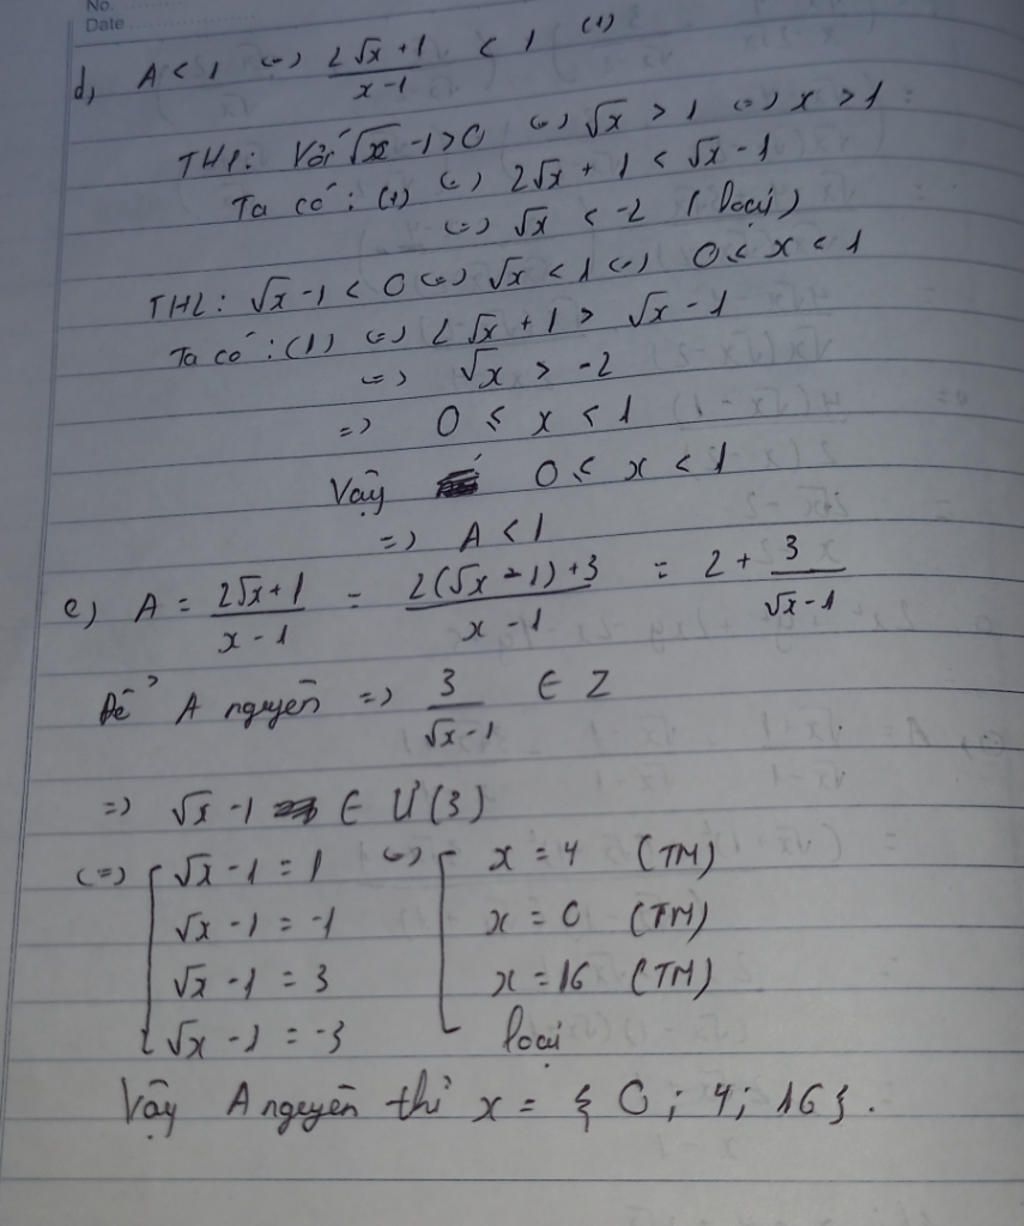 No.
Date
d, A < 1 (=) (2√x + 1)/(x - 1) < 1 (1)
TH1: Với √x - 1 > 0 (=) √x > 1 (=) x > 1
Ta có: (1) (=) 2√x + 1 < √x - 1
(=) √x < -2 (loại)
TH2: √x - 1 < 0 (=) √x < 1 (=) 0 ≤ x < 1
Ta có: (1) (=) 2√x + 1 > √x - 1
(=) √x > -2
=) 0 ≤ x < 1
Vậy 0 ≤ x < 1
=) A < 1
e) A = (2√x + 1)/(x - 1) = (2(√x - 1) + 3)/(x - 1) = 2 + 3/(√x - 1)
Để A nguyên =) 3/(√x - 1) ∈ Z
=) √x - 1 ∈ Ư(3)
(=) [ √x - 1 = 1 (=) [ x = 4 (TM)
√x - 1 = -1 x = 0 (TM)
√x - 1 = 3 x = 16 (TM)
√x - 1 = -3 loại
Vậy A nguyên thì x = {0; 4; 16}.